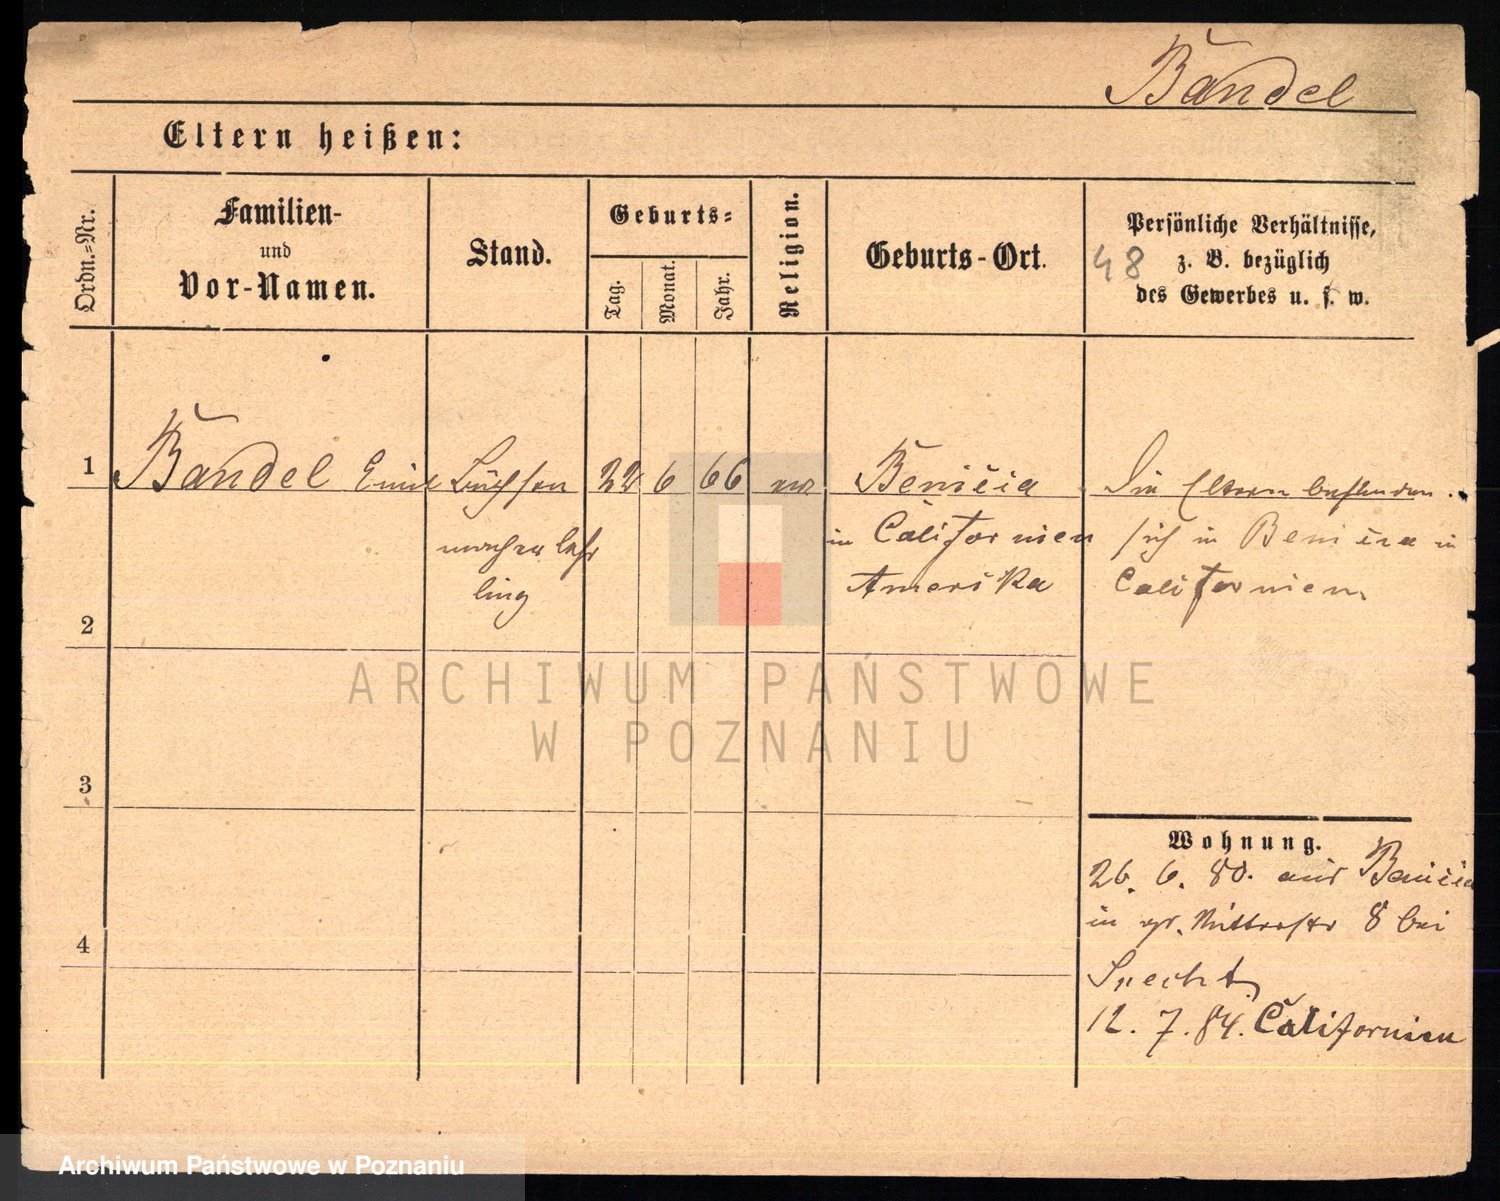 Bandel
Eltern heißen:
Ordn.-Nr.
Familien-
und
Vor-Namen.
Stand.
Geburts-
Tag.
Monat.
Jahr.
Religion.
Geburts-Ort.
Persönliche Verhältnisse,
z. B. bezüglich
des Gewerbes u. s. w.
48
1 Bandel Emil Büchsen 22 6 66 Benicia Die Eltern befinden
macher lehr in Californien sich in Benicia in
ling Amerika Californien
2
3
4
Wohnung.
26. 6. 80. aus Benicia
in gr. Ritterstr 8 bei
Specht
12. 7. 84. Californien
ARCHIWUM PAŃSTWOWE
W POZNANIU
Archiwum Państwowe w Poznaniu